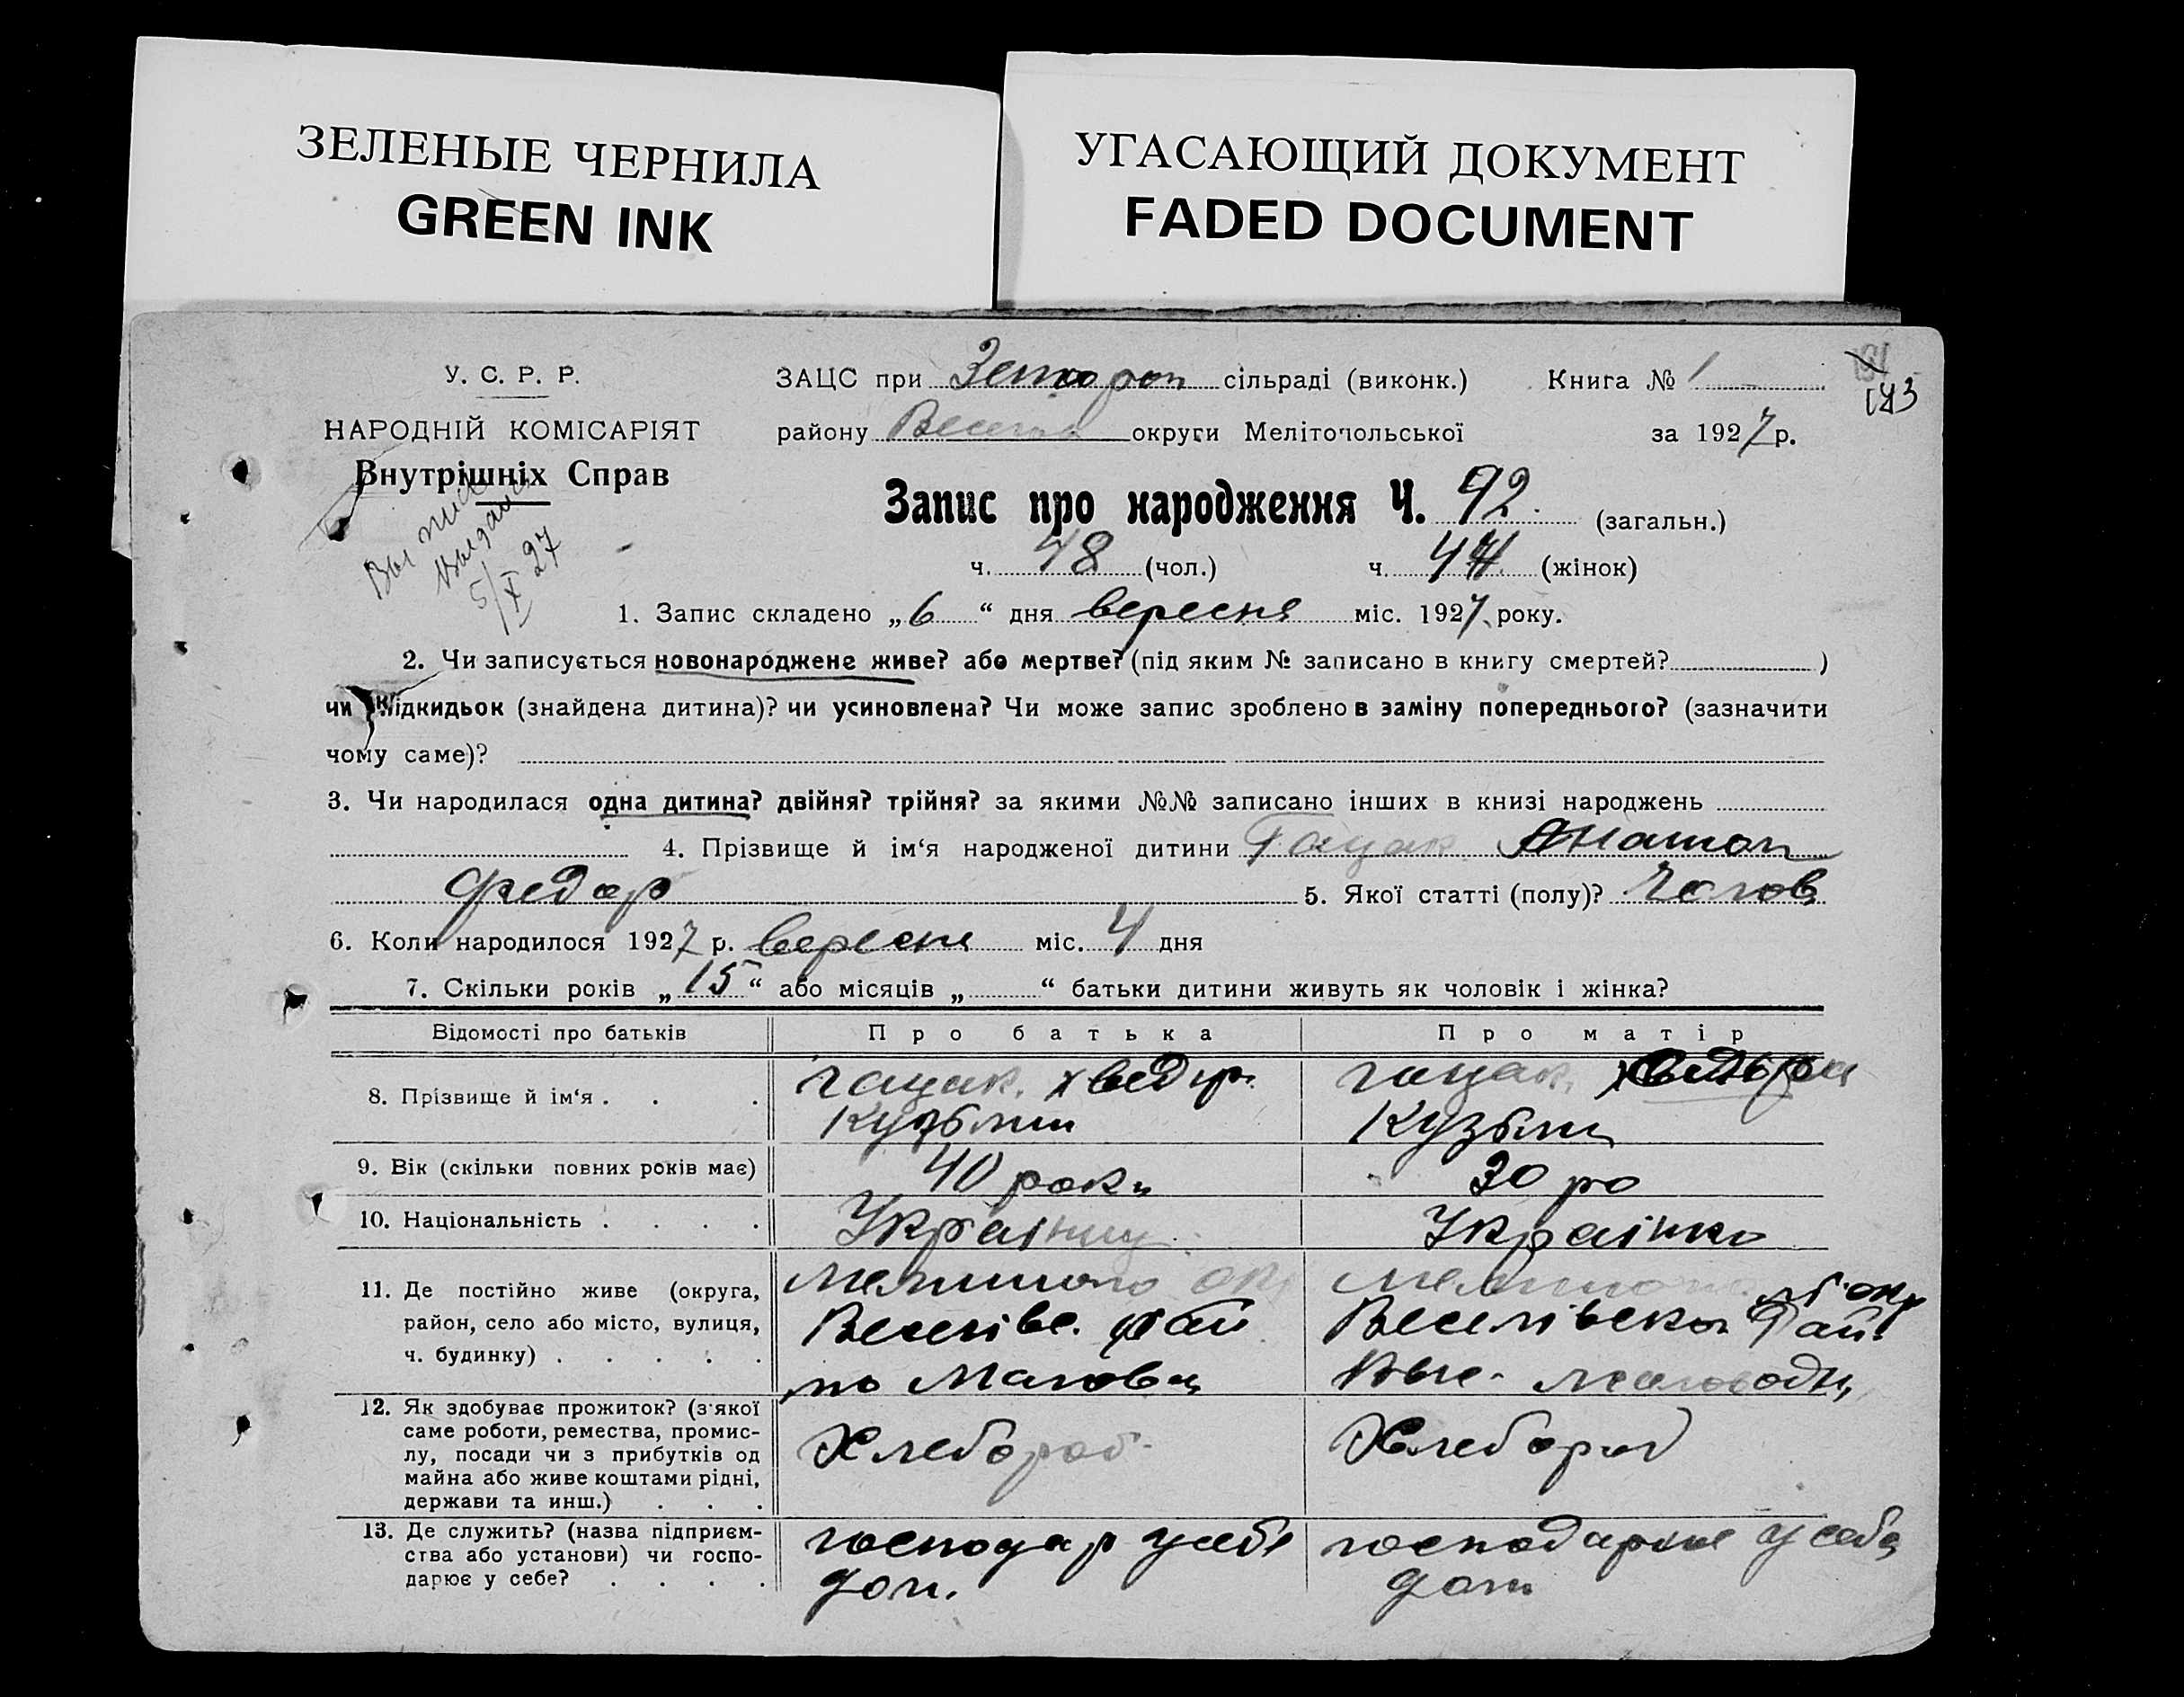 ЗЕЛЕНЫЕ ЧЕРНИЛА
GREEN INK
УГАСАЮЩИЙ ДОКУМЕНТ
FADED DOCUMENT
У. С. Р. Р.
НАРОДНІЙ КОМІСАРІЯТ
Внутрішніх Справ
5/X 27
ЗАЦС при сільраді (виконк.) Книга № 1
143
району округи Мелітопольської за 1927 р.
Запис про народження Ч. 92. (загальн.)
ч. 48 (чол.) ч. 44 (жінок)
1. Запис складено „6“ дня вересня міс. 1927 року.
2. Чи записується новонароджене живе? або мертве? (під яким № записано в книгу смертей? )
чи підкидьок (знайдена дитина)? чи усиновлена? Чи може запис зроблено в заміну попереднього? (зазначити
чому саме)?
3. Чи народилася одна дитина? двійня? трійня? за якими №№ записано інших в книзі народжень
4. Прізвище й ім‘я народженої дитини Гацак Анатол
Федор 5. Якої статті (полу)? Чолов
6. Коли народилося 1927 р. вересня міс. 4 дня
7. Скільки років „15“ або місяців „ “ батьки дитини живуть як чоловік і жінка?
Відомості про батьків Про батька Про матір
8. Прізвище й ім‘я . . . Гацак. Хведир. Гацак.
Кузьмин Кузьми
9. Вік (скільки повних років має) 40 роки 30 ро
10. Національність . . . . Українец Українка
11. Де постійно живе (округа,
район, село або місто, вулиця,
ч. будинку) . . . . .
Веселівс. рай Веселівской рай.
12. Як здобуває прожиток? (з‘якої
саме роботи, ремества, промис-
лу, посади чи з прибутків од
майна або живе коштами рідні,
держави та инш.) . . .
Хлебороб Хлебороб
13. Де служить? (назва підприєм-
ства або установи) чи госпо-
дарює у себе? . . . .
господар у себе
дом.